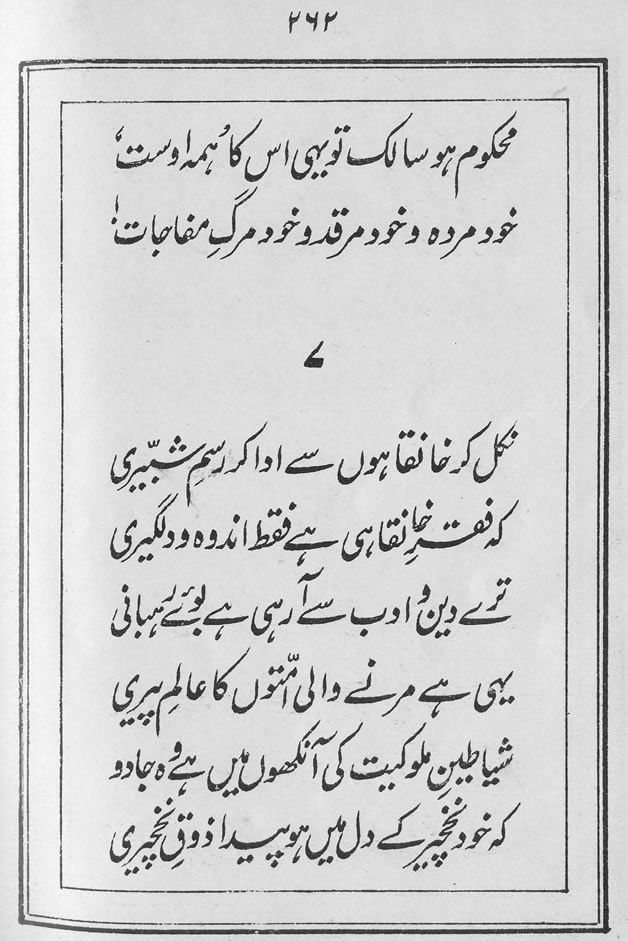 ۲۶۲
محکوم ہو سالک تو یہی اس کا ’ہمہ اوست‘
خود مردہ و خود مرقد و خود مرگِ مفاجات!
۷
نکل کر خانقاہوں سے ادا کر رسمِ شبّیری
کہ فقرِ خانقاہی ہے فقط اندوہ و دلگیری
ترے دین و ادب سے آ رہی ہے بوئے رہبانی
یہی ہے مرنے والی امّتوں کا عالمِ پیری
شیاطینِ ملوکیت کی آنکھوں میں ہے وہ جادو
کہ خود نخچیر کے دل میں ہو پیدا ذوقِ نخچیری